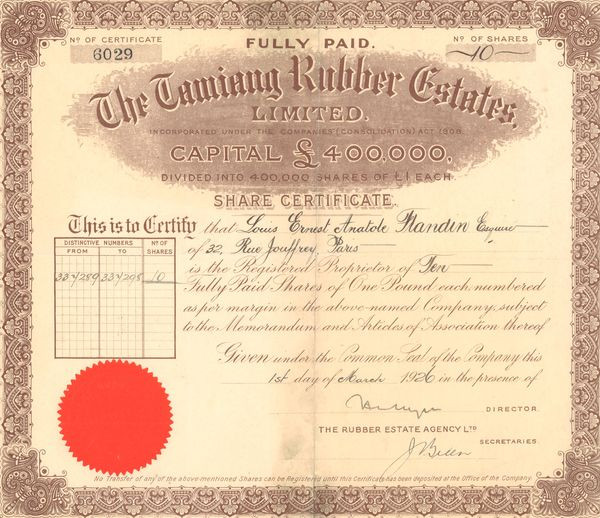 Nº OF CERTIFICATE
6029
FULLY PAID.
Nº OF SHARES
10
The Tamiang Rubber Estates,
LIMITED.
INCORPORATED UNDER THE COMPANIES (CONSOLIDATION) ACT 1908.
CAPITAL £400,000,
DIVIDED INTO 400,000 SHARES OF £1 EACH.
SHARE CERTIFICATE.
This is to Certify that Louis Ernest Anatole Flandin Esquire
of 32, Rue Jouffroy, Paris
is the Registered Proprietor of Ten
Fully Paid Shares of One Pound each, numbered
as per margin in the above-named Company, subject
to the Memorandum and Articles of Association thereof
DISTINCTIVE NUMBERS
Nº OF SHARES
FROM TO
334289 334298 10
Given under the Common Seal of the Company this
1st day of March 1926 in the presence of
DIRECTOR.
THE RUBBER ESTATE AGENCY LTD
SECRETARIES.
No Transfer of any of the above-mentioned Shares can be Registered until this Certificate has been deposited at the Office of the Company.